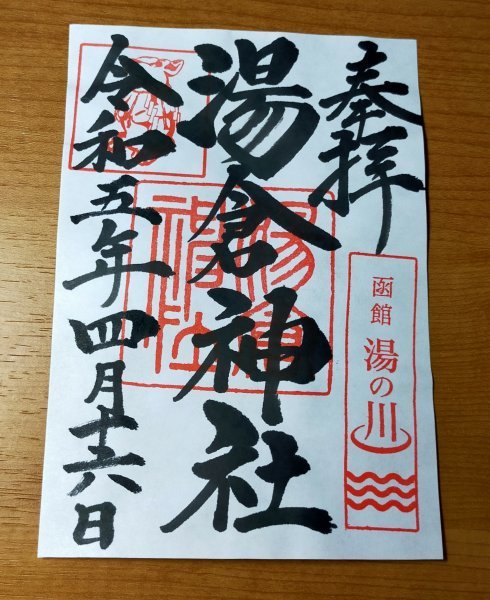 奉拝
函館 湯の川
湯倉神社
湯倉神社
令和五年四月十六日